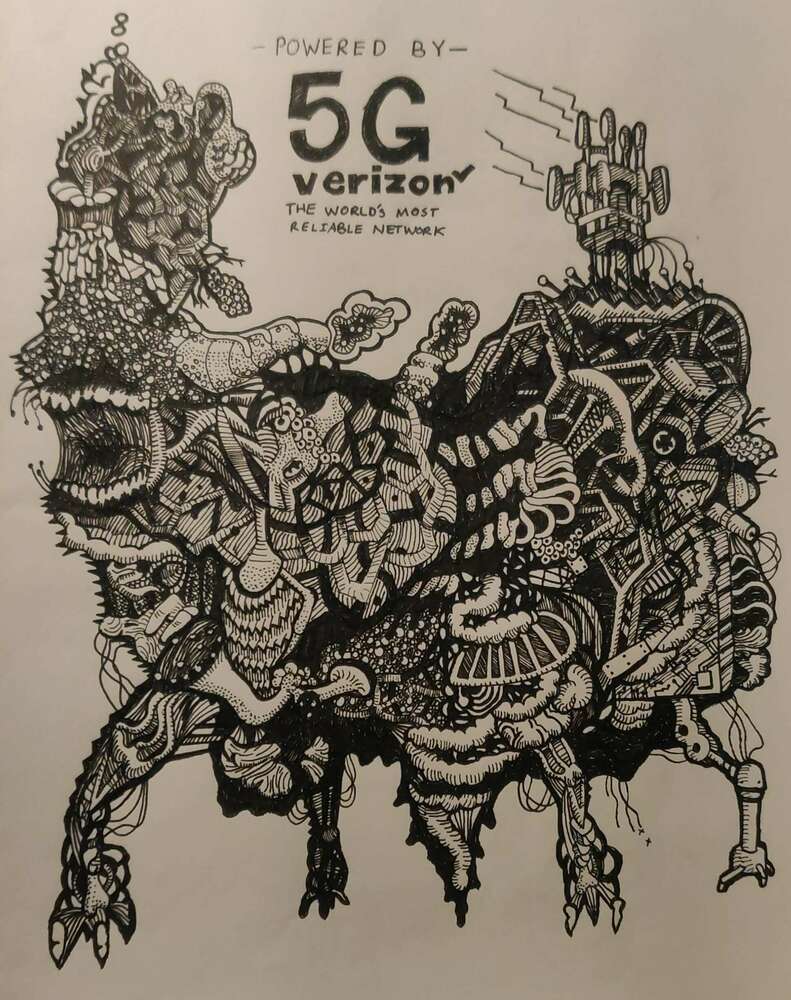 8
- POWERED BY -
5G
verizon✓
THE WORLD'S MOST
RELIABLE NETWORK